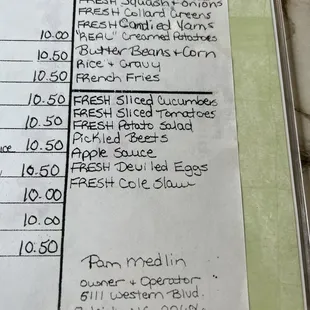 FRESH Squash + Onions
FRESH Collard Greens
FRESH Candied Yams
10.00 "REAL" Creamed Potatoes
10.50 Butter Beans + Corn
Rice + Gravy
10.50 French Fries
10.50 FRESH Sliced Cucumbers
FRESH Sliced Tomatoes
10.50 FRESH Potato Salad
Pickled Beets
10.50 Apple Sauce
10.50 FRESH Devilled Eggs
10.00 FRESH Cole Slaw
10.00
10.50
Pam Medlin
owner + Operator
5111 Western Blvd.